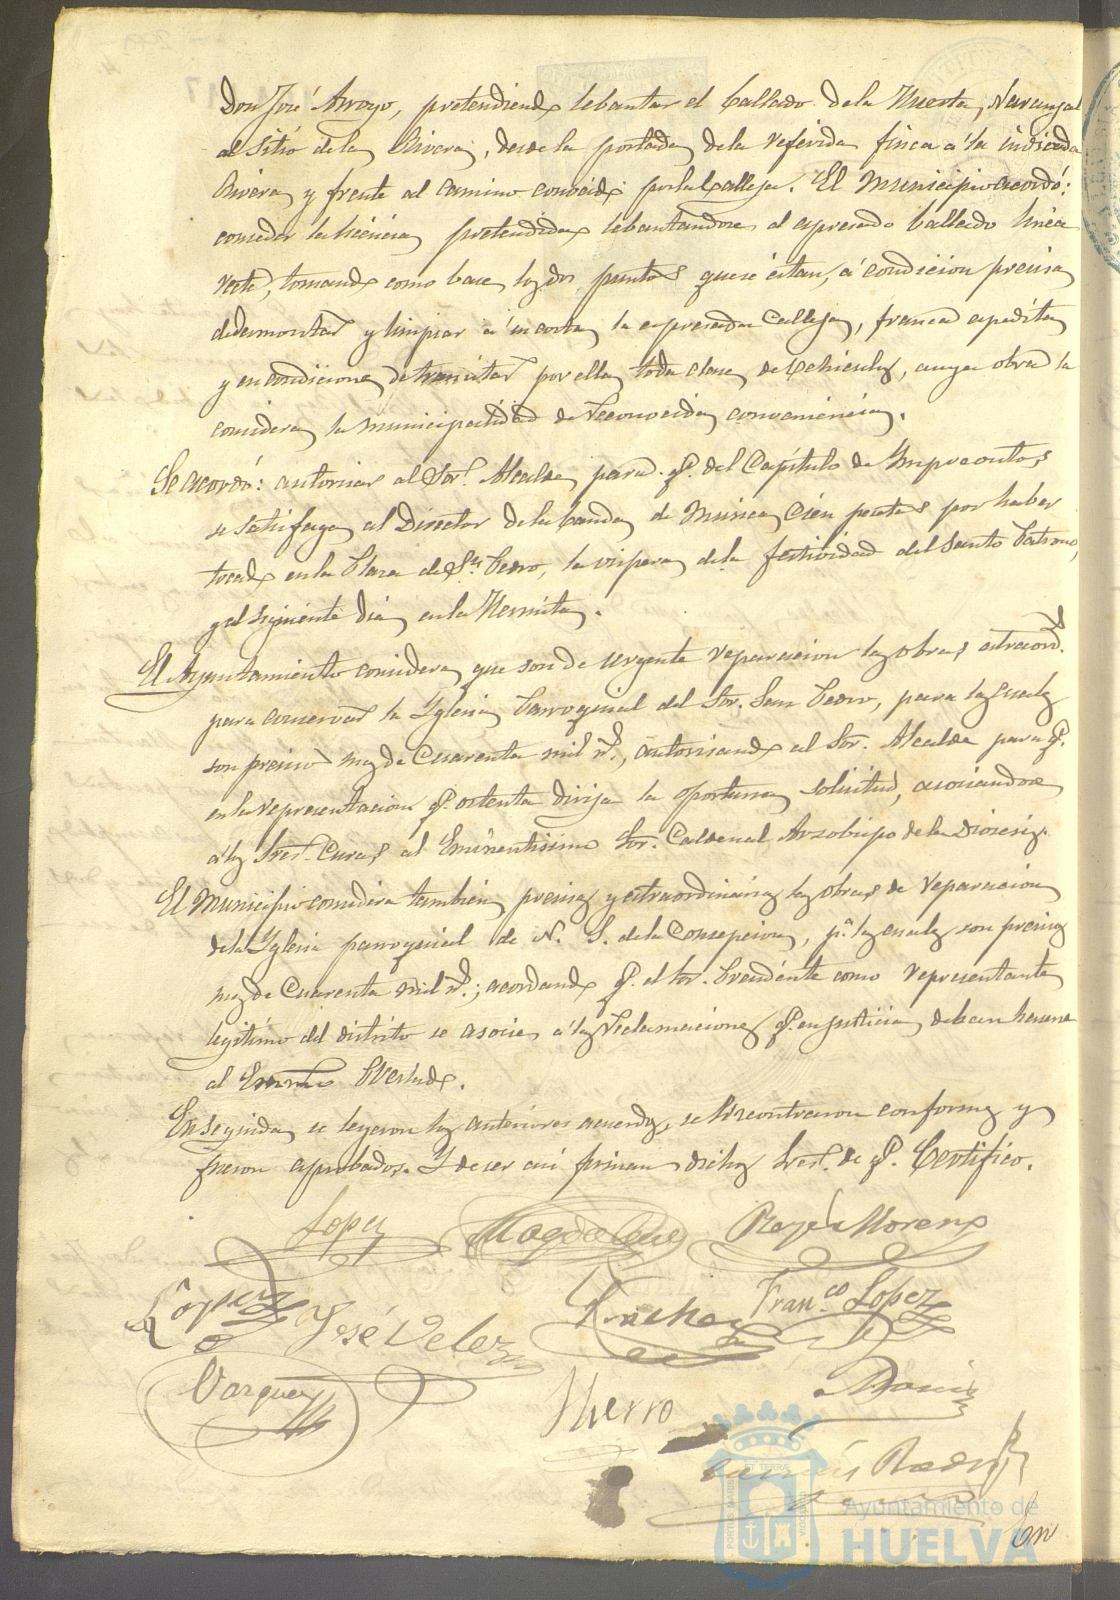 Don José Arroyo, pretendiendo lebantar el ballado de la Huerta, Naranjal
al sitio de la Rivera, desde la portada de la referida finca a la indicada
Rivera y frente al camino conocido por la Calleja. El Municipio acordó:
conceder la licencia pretendida lebantandose el espresado ballado linea
recta, tomando como base los dos puntos que se citan, á condicion precisa
de desmontar y limpiar á su costa la espresada Calleja, franca espedita
y en condiciones de transitar por ella toda clase de vehiculos, cuya obra la
considera la municipalidad de reconocida conveniencia.
Se acordó: autorisar al Sor. Alcalde para q.e del Capítulo de Imprevistos
se satisfaga al Director de la banda de Música Cien pesetas por haber
tocado en la Plaza de S.n Pedro, la vispera de la festividad del Santo Patrono,
y el siguiente dia en la Hermita.
El Ayuntamiento considera que son de urgente reparacion las obras estraord.s
para conservar la Yglesia Parroquial del Sor. San Pedro, para las cuales
son preciso mas de Cuarenta mil r.s, autorisando al Sor. Alcalde para q.e
en la representacion q.e ostenta dirija la oportuna solicitud, asociandose
á los Sres. Curas al Eminentisimo Sor. Caldenal Arzobispo de la Diocesis.
El Municipio considera tambien precisas y estraordinarias las obras de reparacion
de la Yglesia parroquial de N. S. de la Consepcion, p.a las cuales son precisos
mas de Cuarenta mil r.s; acordando q.e el Sor. Presidente como representante
legitimo del distrito se asocie á las reclamaciones q.e en justicia deban hacerse
al Prelado.
En seguida se leyeron los anteriores acuerdos, se encontraron conformes y
fueron aprobados. Y de ser asi firman dichos Sres. de q.e Certifico.
Lopez Magdalena Moreno
Lopez José Velez Franco Lopez
Vazquez Hierro
PORTUS MARIS ET TERRÆ CUSTODIA
Ayuntamiento de
HUELVA